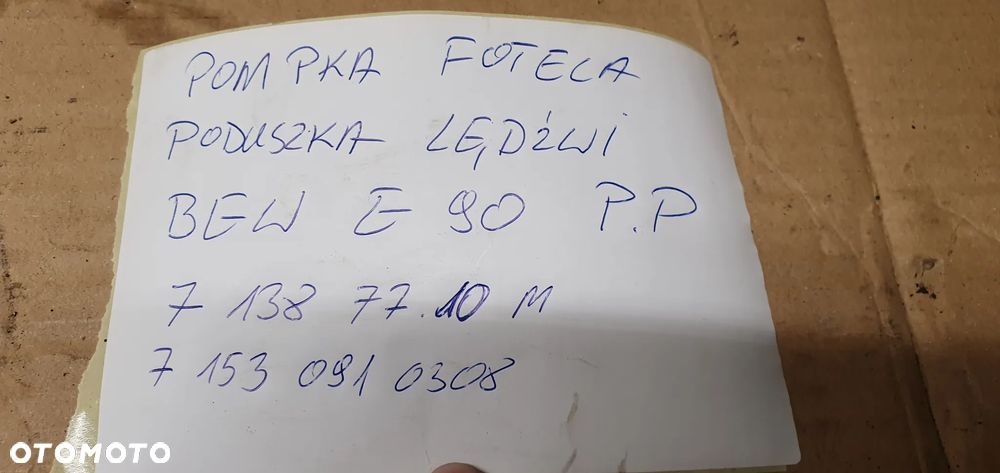 POMPKA FOTELA
PODUSZKA LĘDŹWI
BEW E 90 P.P
7 138 77.10 M
7 153 091 0308
OTOMOTO